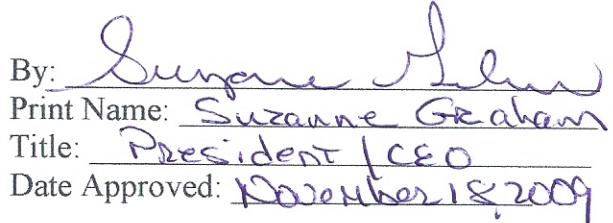 By: Suzanne Graham
Print Name: Suzanne Graham
Title: President / CEO
Date Approved: November 18, 2009